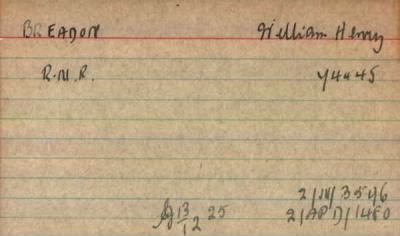 BREADON William Henry
R.N.R. 4445
2/N/3596
13/12 25 2/APD/1480